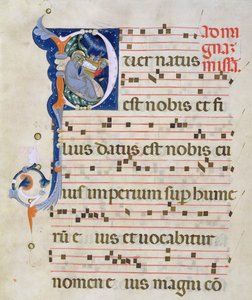 Puer natus
ad mi
gnaz
missã.
est nobis et fi
lius datus est nobis cu
ius imperium sup hume
rũ e ius et vocabitur
nomen e ius magni cõ